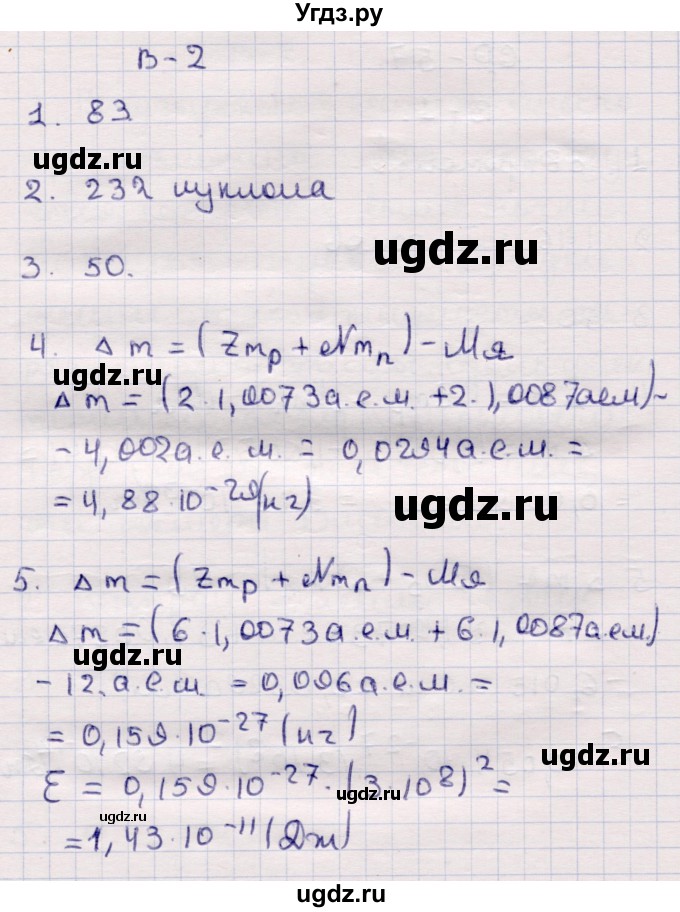 Угдз.ру
В-2
1. 83
ugdz.ru
2. 232 нуклона
ugdz.ru
3. 50.
4. Δm = (Zmp + Nmn) - Mя
ugdz.ru
Δm = (2·1,0073а.е.м. + 2·1,0087аем) -
- 4,002а.е.м. = 0,0294а.е.м. =
= 4,88·10⁻²⁹(кг)
ugdz.ru
5. Δm = (Zmp + Nmn) - Mя
Δm = (6·1,0073а.е.м. + 6·1,0087а.е.м)
ugdz.ru
- 12.а.е.м. = 0,096а.е.м. =
= 0,159·10⁻²⁷ (кг)
ugdz.ru
E = 0,159·10⁻²⁷·(3·10⁸)² =
ugdz.ru
ugdz.ru
= 1,43·10⁻¹¹ (Дж)
ugdz.ru